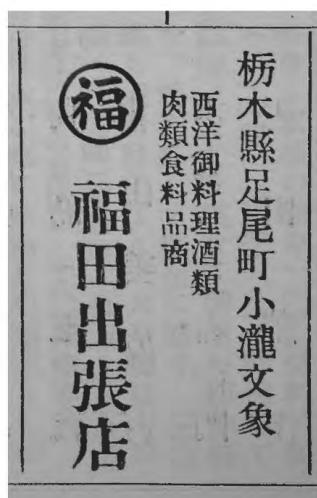 栃木縣足尾町小瀧文象
西洋御料理酒類
肉類食料品商
福
福田出張店